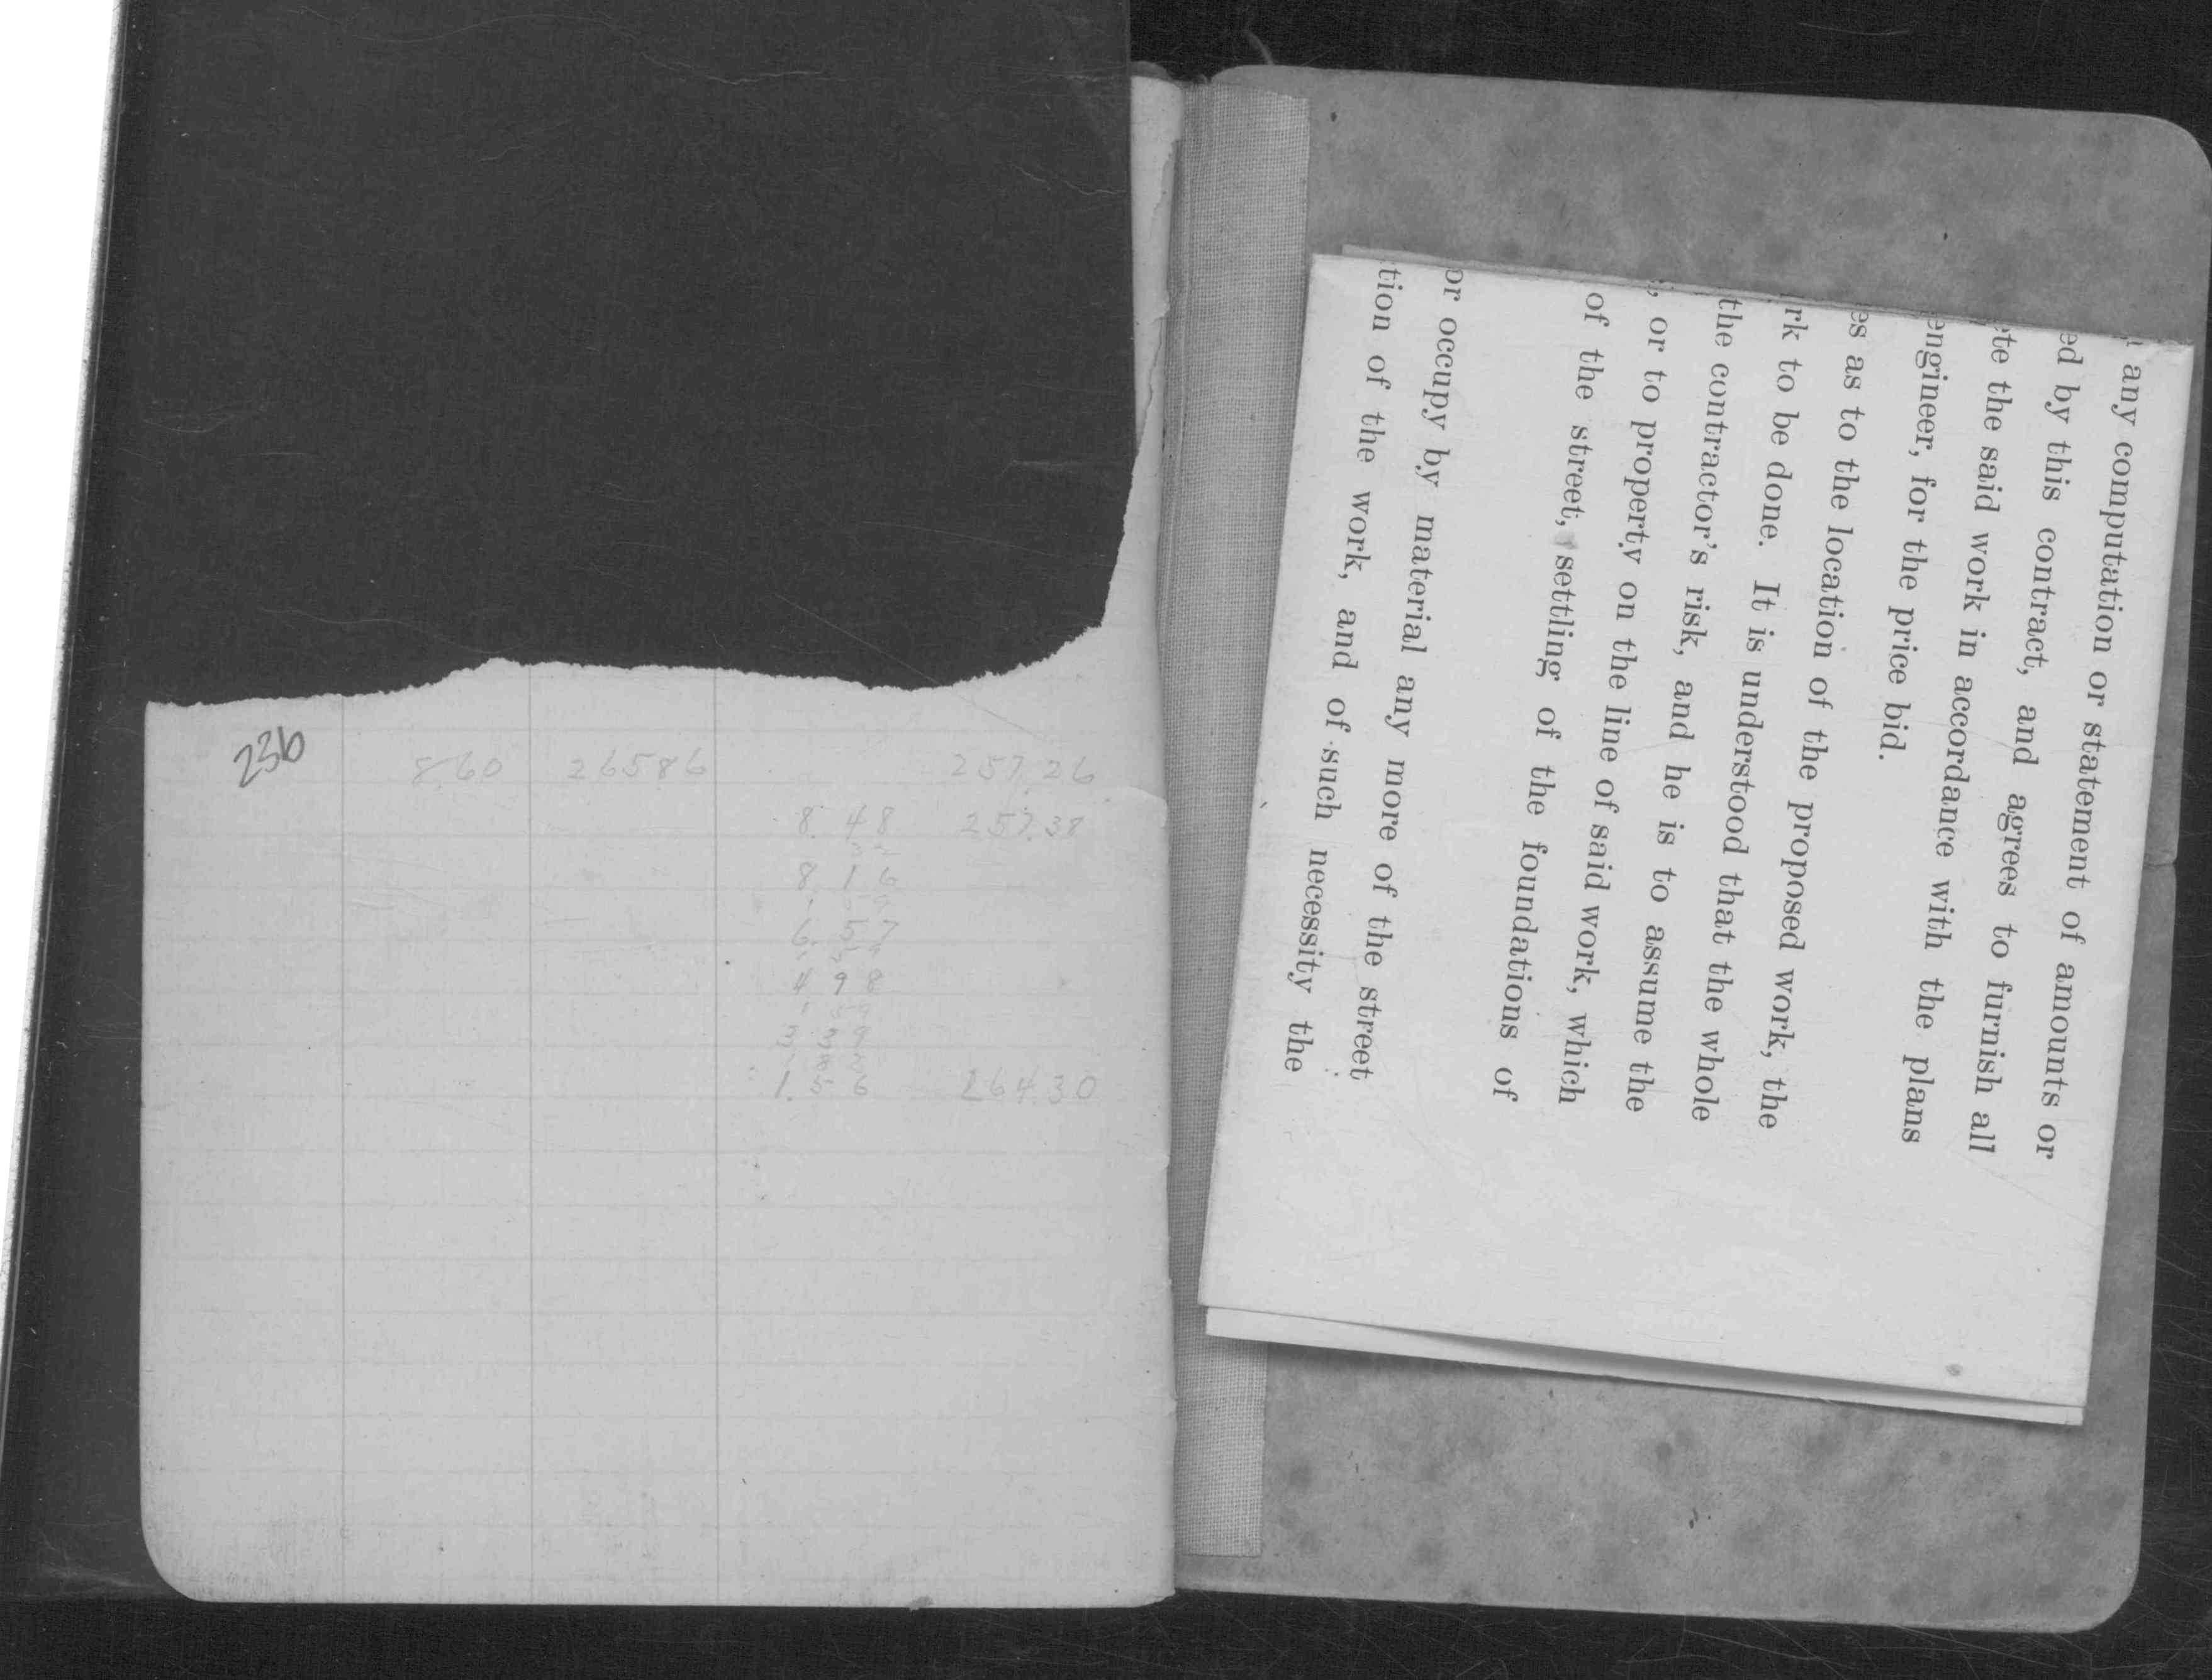 23b
8.60 265.86 257.26
8.48 257.38
8.1
6.57
4.98
3.39
1.56 264.30
any computation or statement of amounts or
ed by this contract, and agrees to furnish all
ete the said work in accordance with the plans
engineer, for the price bid.
es as to the location of the proposed work, the
rk to be done. It is understood that the whole
the contractor's risk, and he is to assume the
, or to property on the line of said work, which
of the street, settling of the foundations of
or occupy by material any more of the street
tion of the work, and of such necessity the